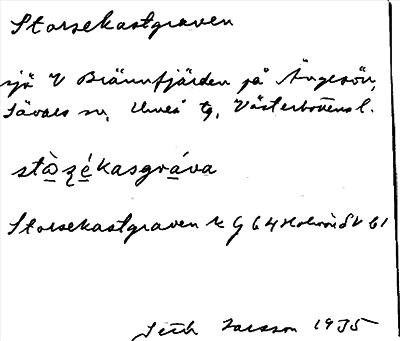 Storsekastgraven
sjö V Brännfjärden på Ängesön,
Sävars sn, Umeå tg, Västerbottens l.
stò̱zé̱kasgrá̱va
Storsekastgraven k G 64 Holmön SV 61
Seth Larsson 1935